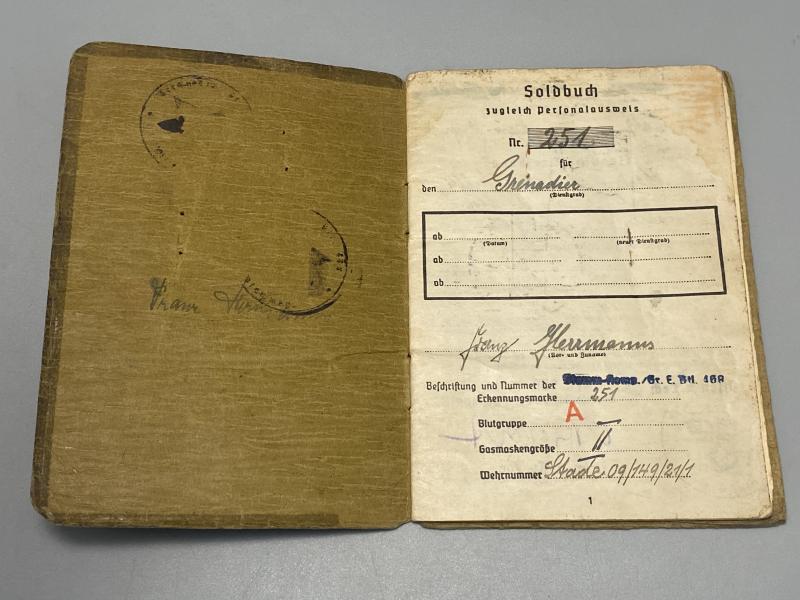 Franz
Soldbuch
zugleich Personalausweis
Nr. 251
für
den Grenadier
(Dienstgrad)
ab
(Datum) (neuer Dienstgrad)
ab
ab
Franz Herrmanns
(Vor- und Zuname)
Beschriftung und Nummer der Stamm-Komp./Gr. E. Btl. 16A
Erkennungsmarke 251
Blutgruppe A
Gasmaskengröße II
Wehrnummer Stade 09/149/21/1
1